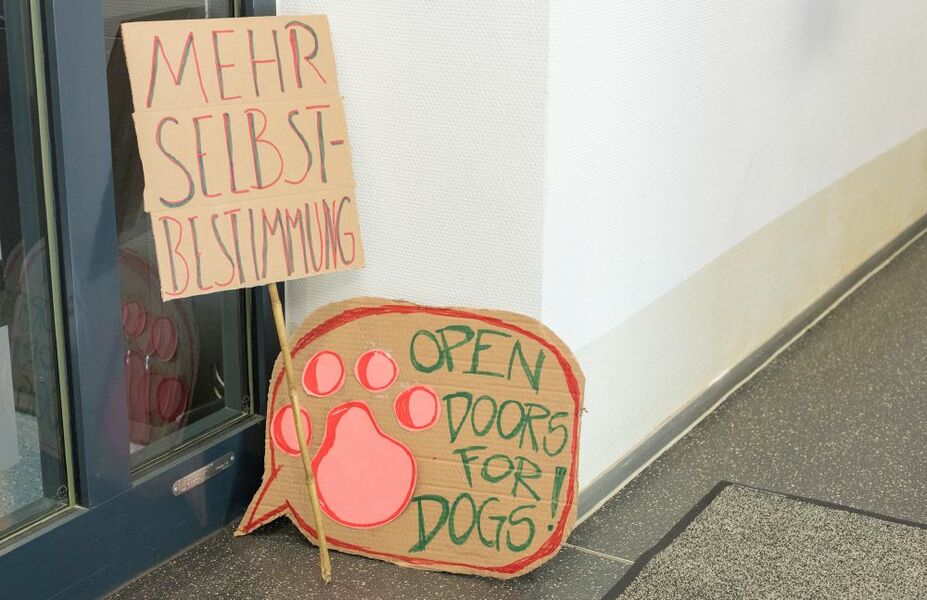 MEHR
SELBST-
BESTIMMUNG
OPEN
DOORS
FOR
DOGS!